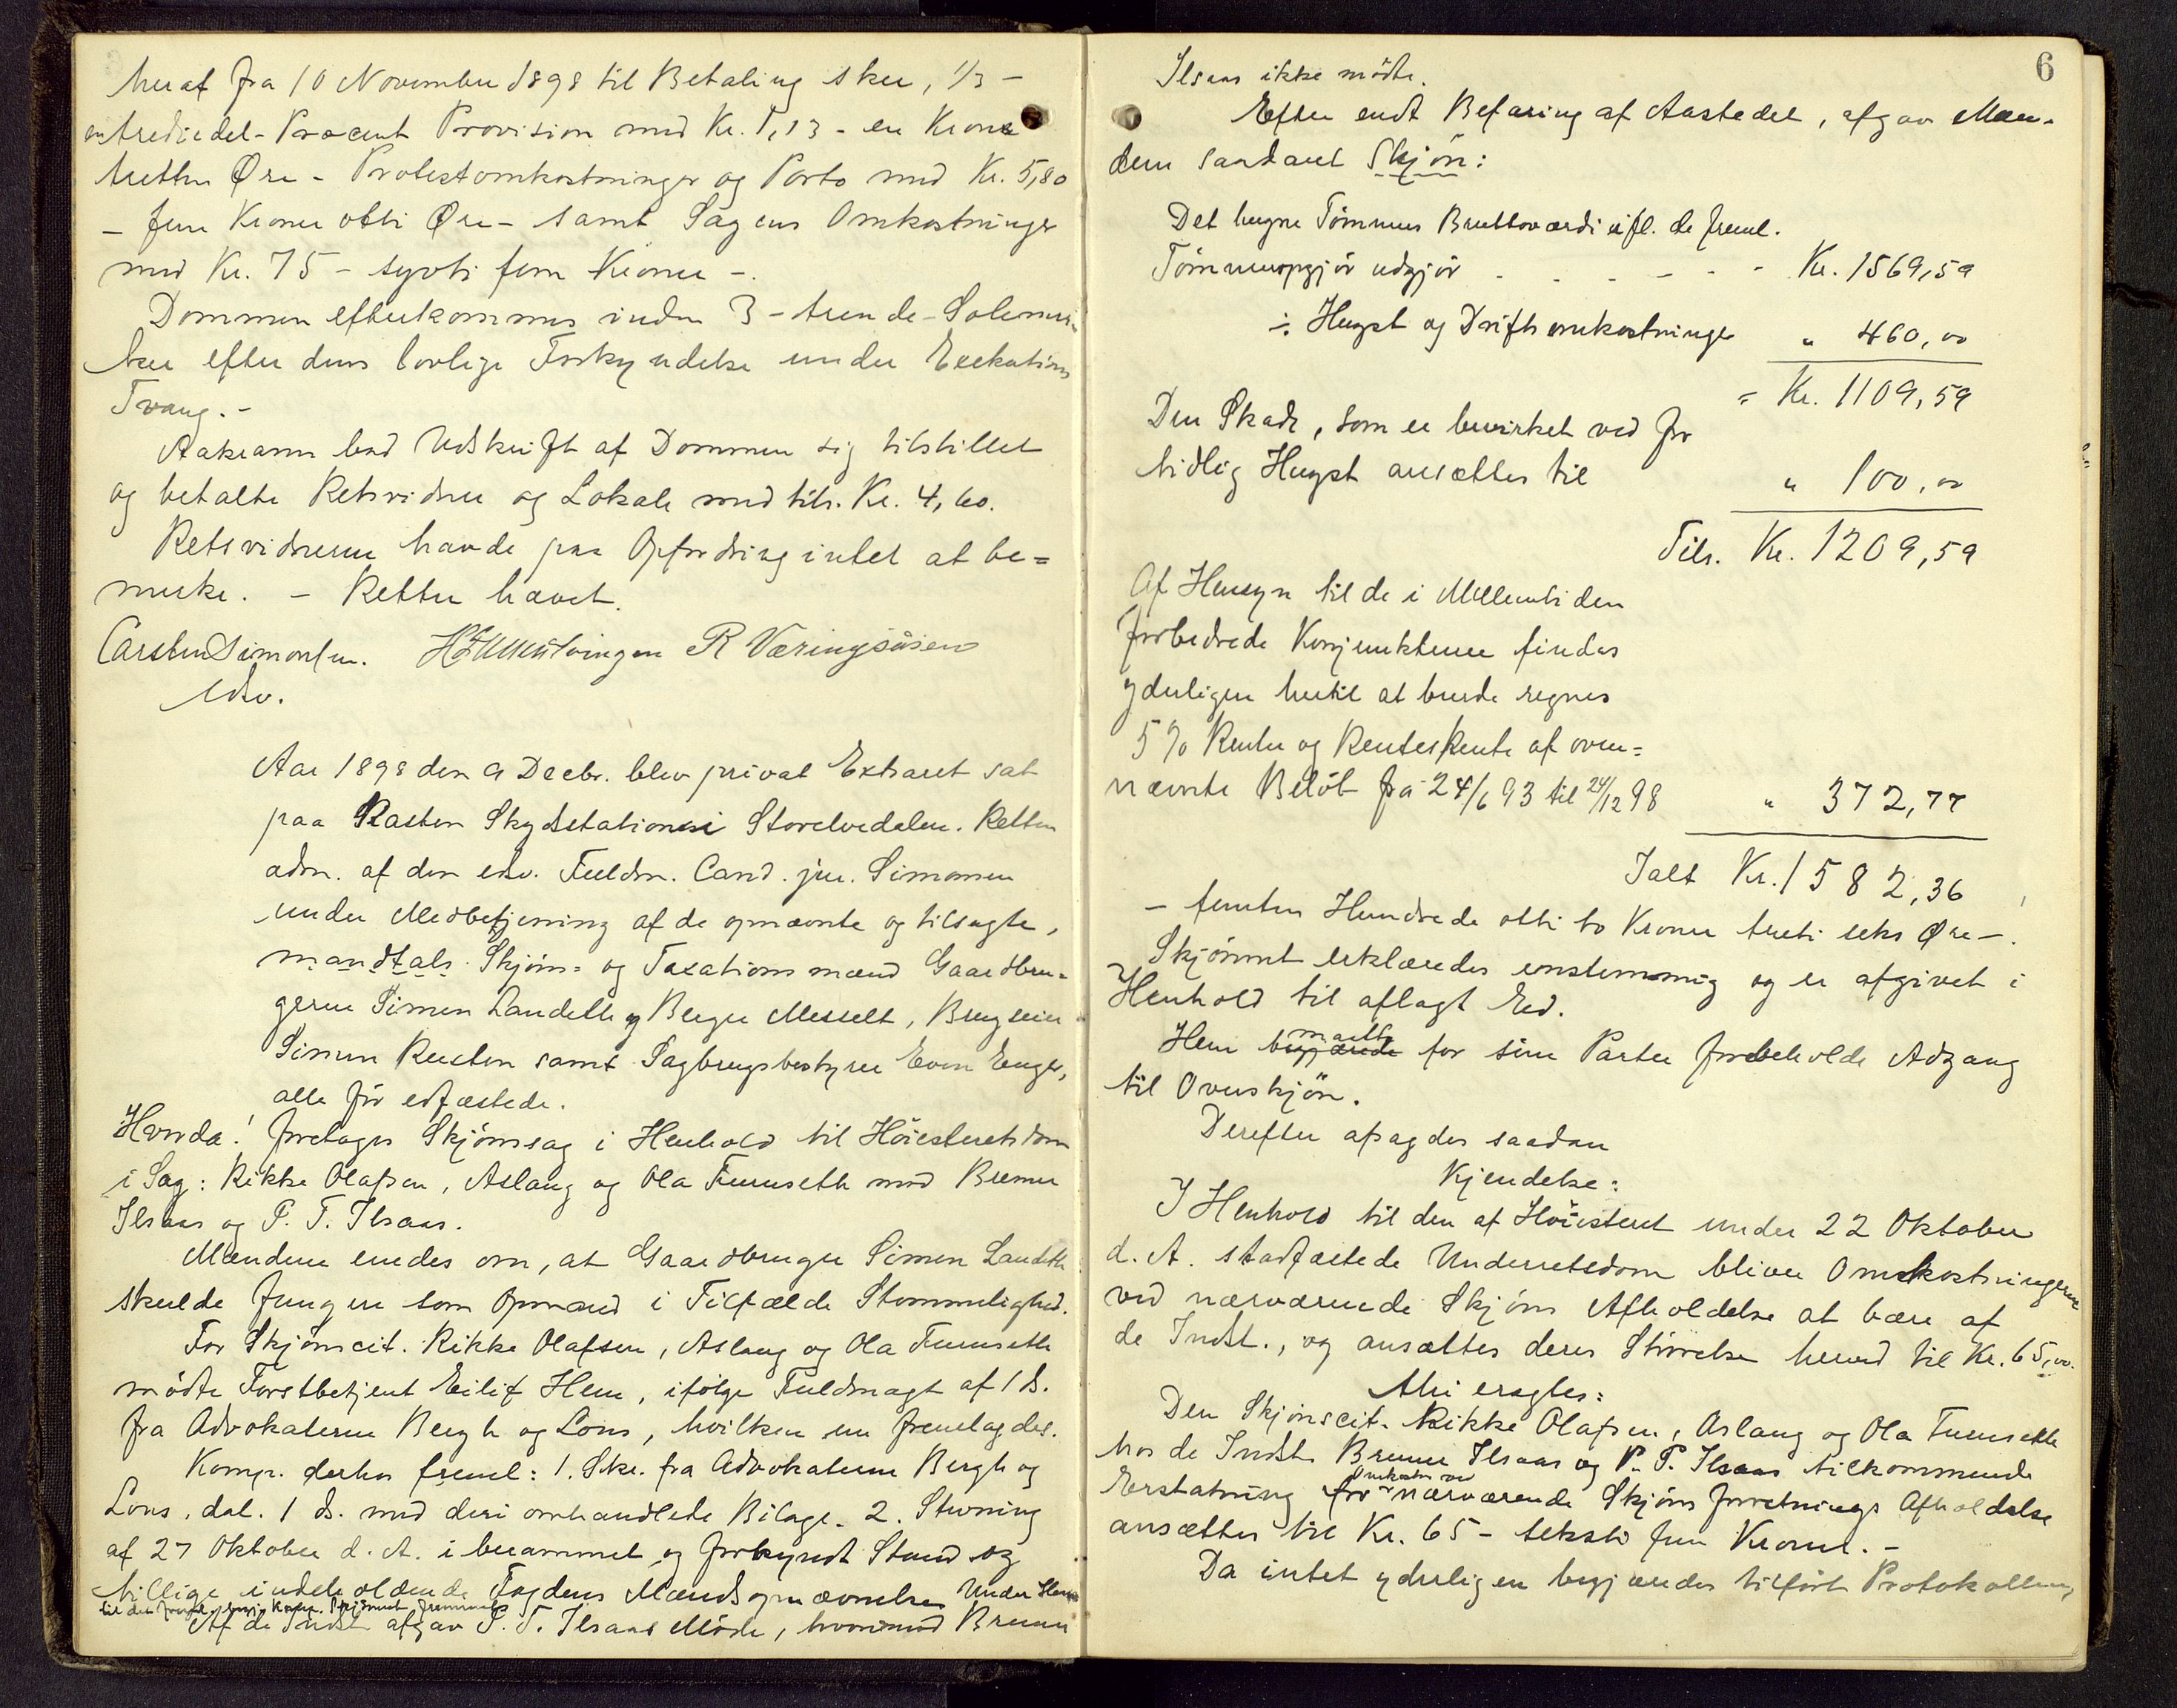 heraf fra 10 November 1898 til Betaling sker, 1/3 -
en trediedel - Procent Provision med Kr. 1,13 - en Krone
tretten Øre - Protestomkostninger og Porto med Kr. 5,80
- fem Kroner otti Øre - samt Sagens Omkostninger
med Kr. 75 - sytti fem Kroner -.
Dommen efterkommes inden 3 - trende - Solemær-
ker efter dens lovlige Forkyndelse under Exekutions
Tvang. -
Aakrann bad Udskrift af Dommen sig tilstillet
og betalte Retsvidner og Lokale med tils. Kr. 4,60.
Retsvidnerne havde paa Opfordring intet at be=
merke. - Retten hævet.
Carsten Simonsen. R Væringsåsen
edsv.
Aar 1898 den 9 Decbr. blev privat Extraret sat
paa Rasten Skydsstation i Storelvedalen. Retten
adm. af den edsv. Fuldm. Cand. jur. Simonsen
under Medbetjening af de opnævnte og tilsagte,
mandtals Skjøns= og Taxationsmænd Gaardbru=
gerne Simen Landeth og Berger Messelt, Brugseier
Simen Rusten samt Sagbrugsbestyrer Even Enger,
alle før edfæstede.
Hvorda! foretages Skjønssag i Henhold til Høiesteretsdom
i Sag: Rikke Olafsen, Aslaug og Ola Furuseth mod Bremer
Ilsaas og P. T. Ilsaas.
Mændene enedes om, at Gaardbruger Simen Landeth
skulde fungere som Opmand i Tilfælde Stemmelighed.
For Skjønscit. Rikke Olafsen, Aslaug og Ola Furuseth
mødte Forstbetjent Eilif Hem, ifølge Fuldmagt af 1 ds.
fra Advokaterne Bergh og Lous, hvilken en fremlagdes.
Komp. derhos freml: 1. Skr. fra Advokaterne Bergh og
Lous, dat. 1 ds. med deri omhandlede Bilage. 2. Stevning
af 27 Oktober d. A. i berammet og forkyndt Stand og
tillige indeholdende Fogdens Mændsopnævnelse. Under Henv
til det freml. begj. Komp. Skjønnet fremmet.
Af de Indst. afgav P. T. Ilsaas Møde, hvorimod Bremer
6
Ilsaas ikke mødte.
Efter endt Befaring af Aastedet, afgav Mæn-
dene saadant Skjøn:
Det hugne Tømmers Bruttoværdi ifl. de freml.
Tømmeropgjør udgjør - - - - - - Kr. 1569,59
÷ Hugst og Driftsomkostninger " 460,00
= Kr. 1109,59
Den Skade, som er bevirket ved for
tidlig Hugst ansættes til " 100,00
Tils. Kr. 1209,59
Af Hensyn til de i Mellemtiden
forbedrede Konjunkturer findes
yderligere hertil at burde regnes
5 % Renter og Rentes Rente af oven=
nævnte Beløb fra 24/6 93 til 24/12 98 " 372,77
Ialt Kr. 1582,36
- femten Hundrede otti to Kroner treti seks Øre -.
Skjønnet erklæredes enstemmig og er afgivet i
Henhold til aflagt Ed.
Hem maatte begjærede for sine Parter forbeholde Adgang
til Overskjøn.
Derefter afsagdes saadan
Kjendelse:
I Henhold til den af Høiesteret under 22 Oktober
d. A. stadfæstede Underretsdom bliver Omkostningerne
ved nærværende Skjøns Afholdelse at bære af
de Indst., og ansættes deres Størrelse herved til Kr. 65,00.
Thi eragtes:
Den Skjønscit. Rikke Olafsen, Aslaug og Ola Furuseth
hos de Indst. Bremer Ilsaas og P. T. Ilsaas tilkommende
Erstatning for Omkostn. ved nærværende Skjøns Forretnings Afholdelse
ansættes til Kr. 65 - seksti fem Kroner. -
Da intet yderligere begjæredes tilført Protokollen,